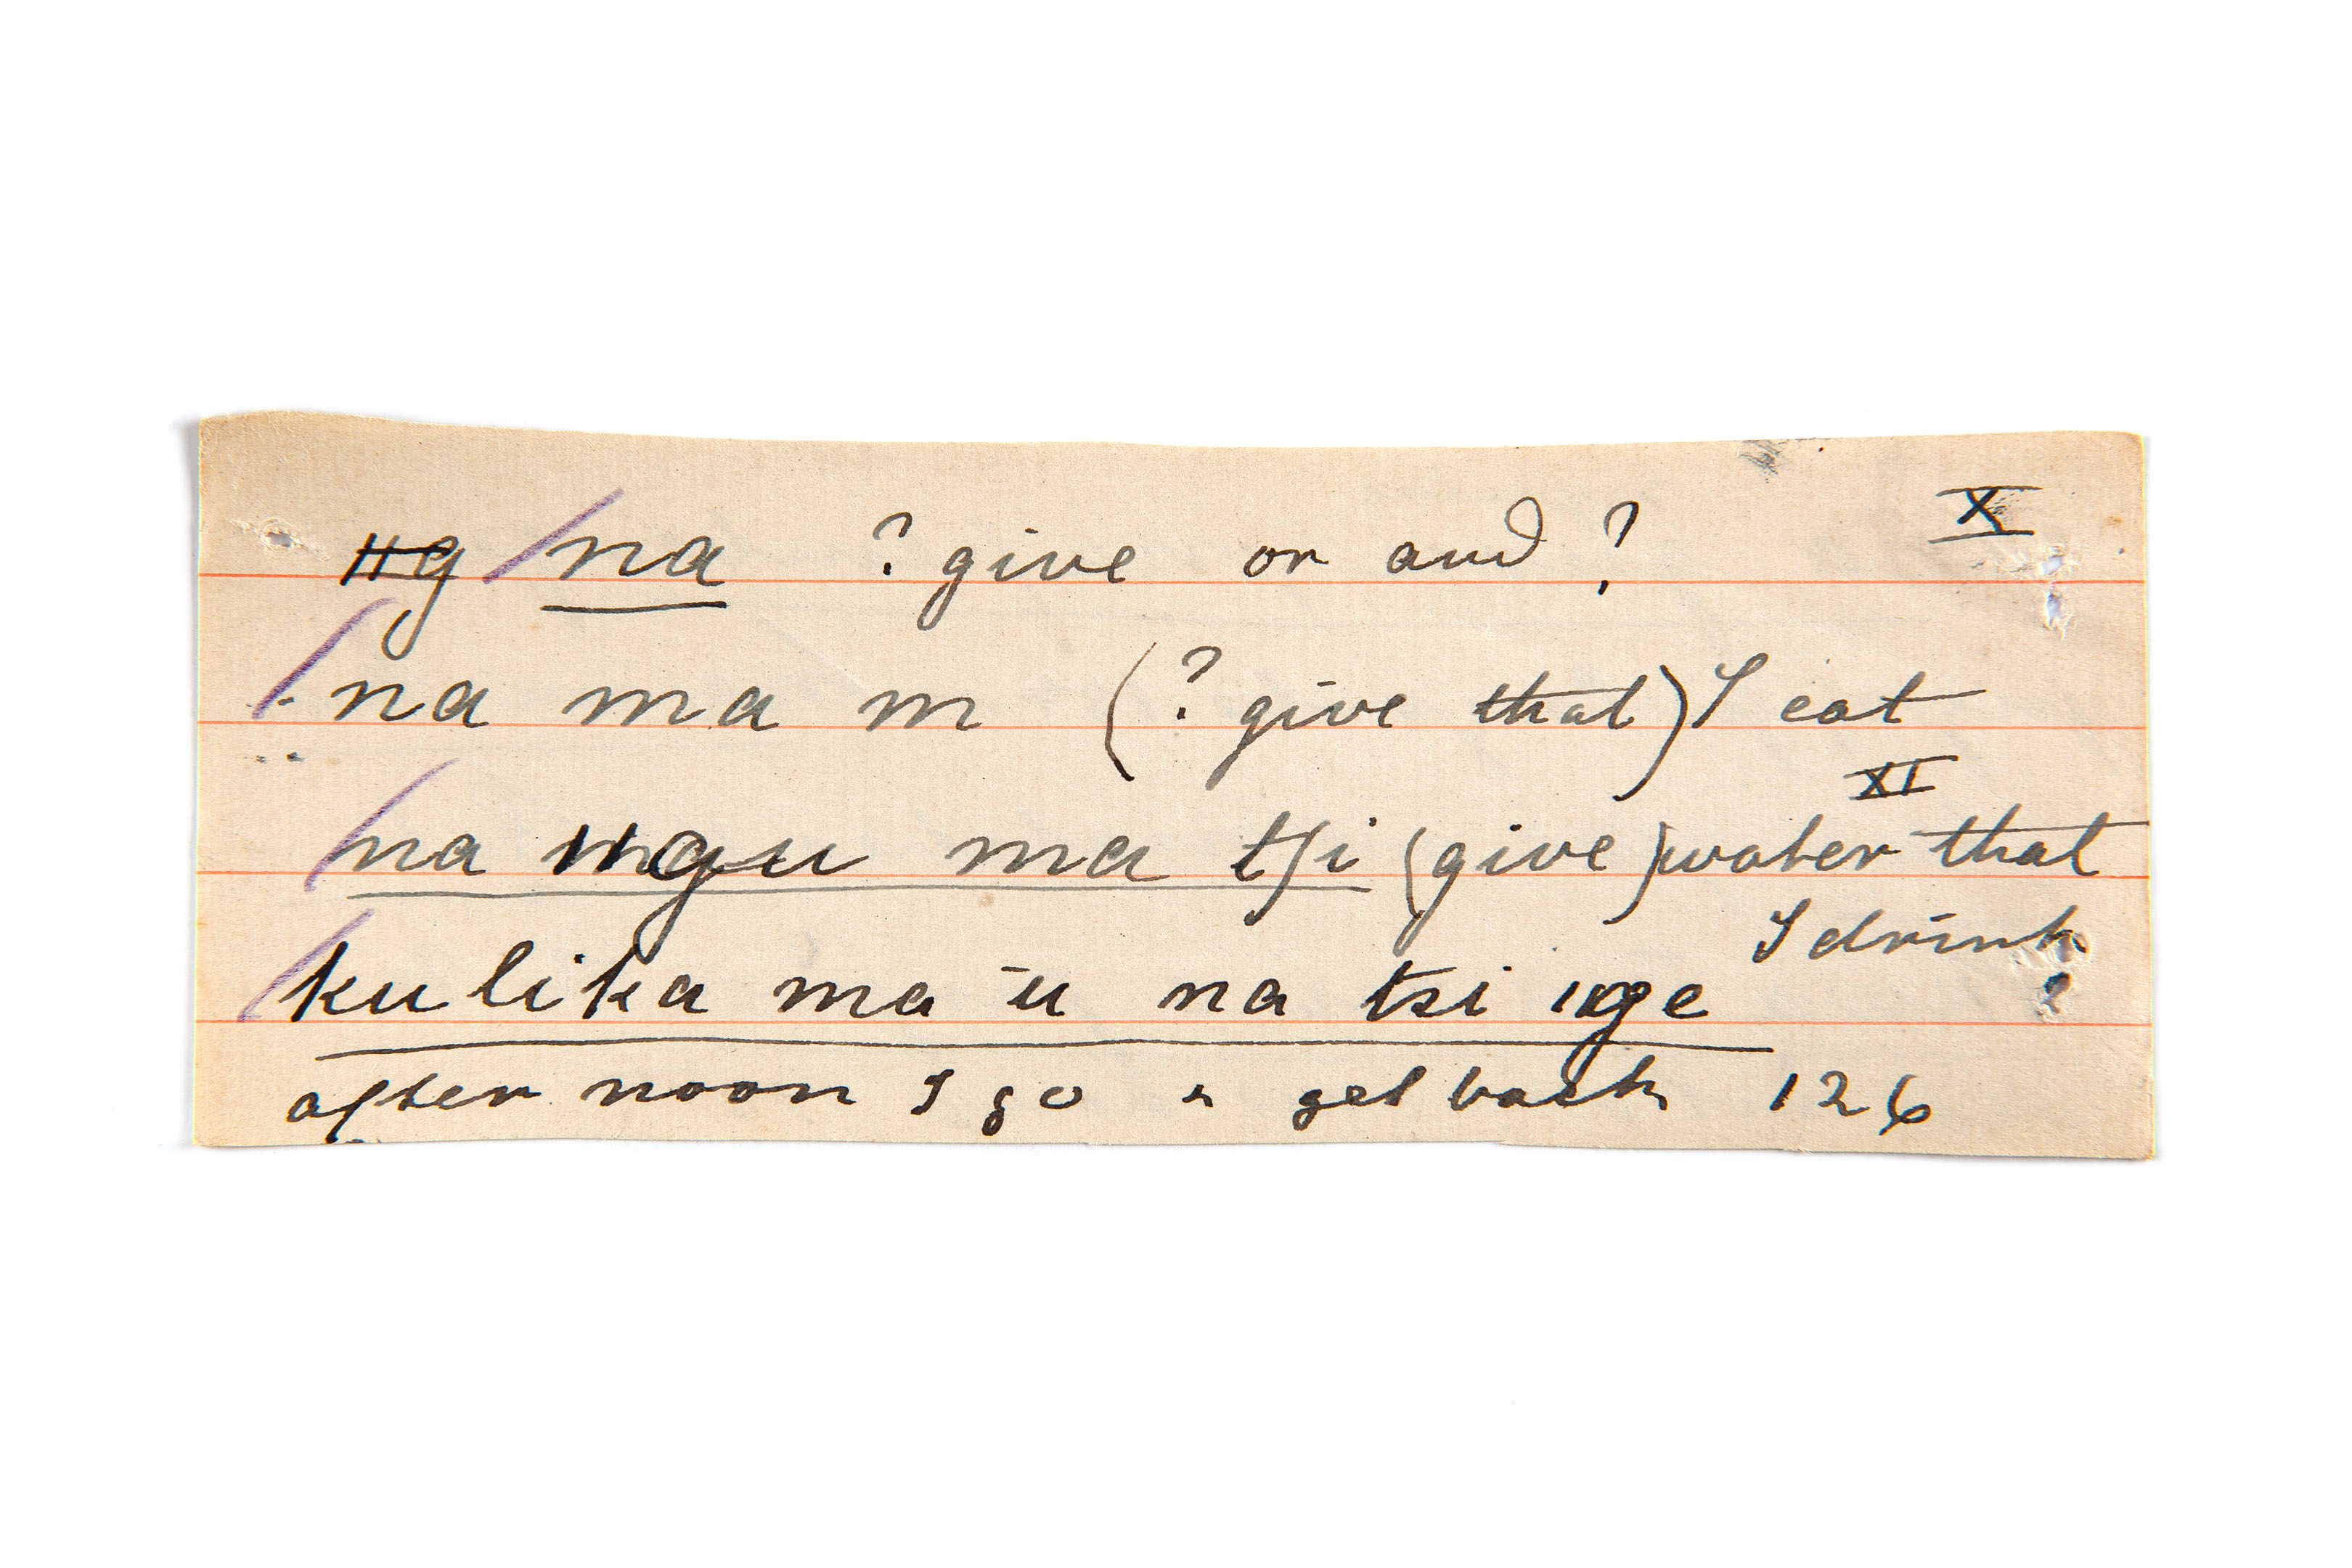 na ? give or and ? X
na ma m (? give that) I eat
XI
na ngu ma tʃi (give) water that
I drink
kulika ma ū na tsi nge ?
after noon I go & get back 126